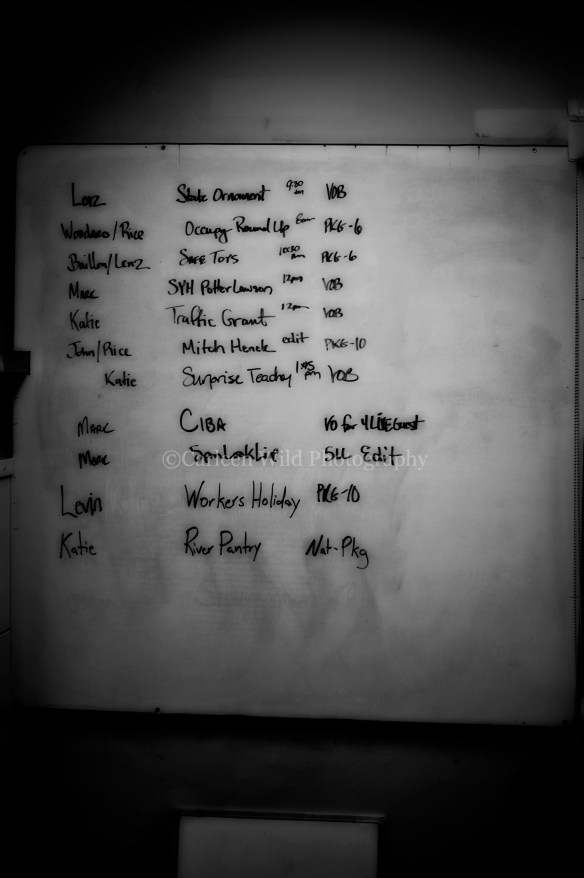 Lorz State Ornament 9:30 am VOB
Woodard/Rice Occupy Round Up PKG-6
Baillon/Lorz SAFE Toys 10:30 am PKG-6
MARC SYH Potter Lawson 12pm VOB
Katie Traffic Grant 12pm VOB
John/Rice Mitch Henck edit PKG-10
Katie Surprise Teachey 1:45 pm VOB
MARC CIBA VO for 4 LIVE Guest
MARC 5LL Edit
©Carleen Wild Photography
Levin Workers Holiday PKG-10
Katie River Pantry Nat-Pkg